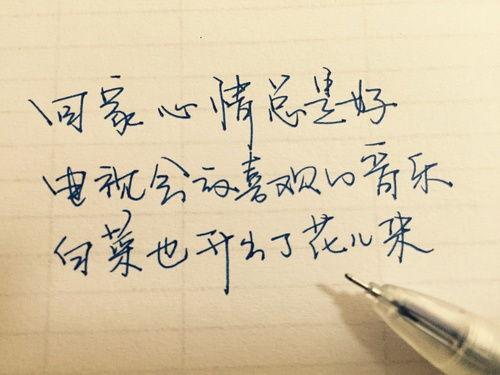 回家心情总是好
电视会放喜欢的音乐
白菜也开出了花儿来